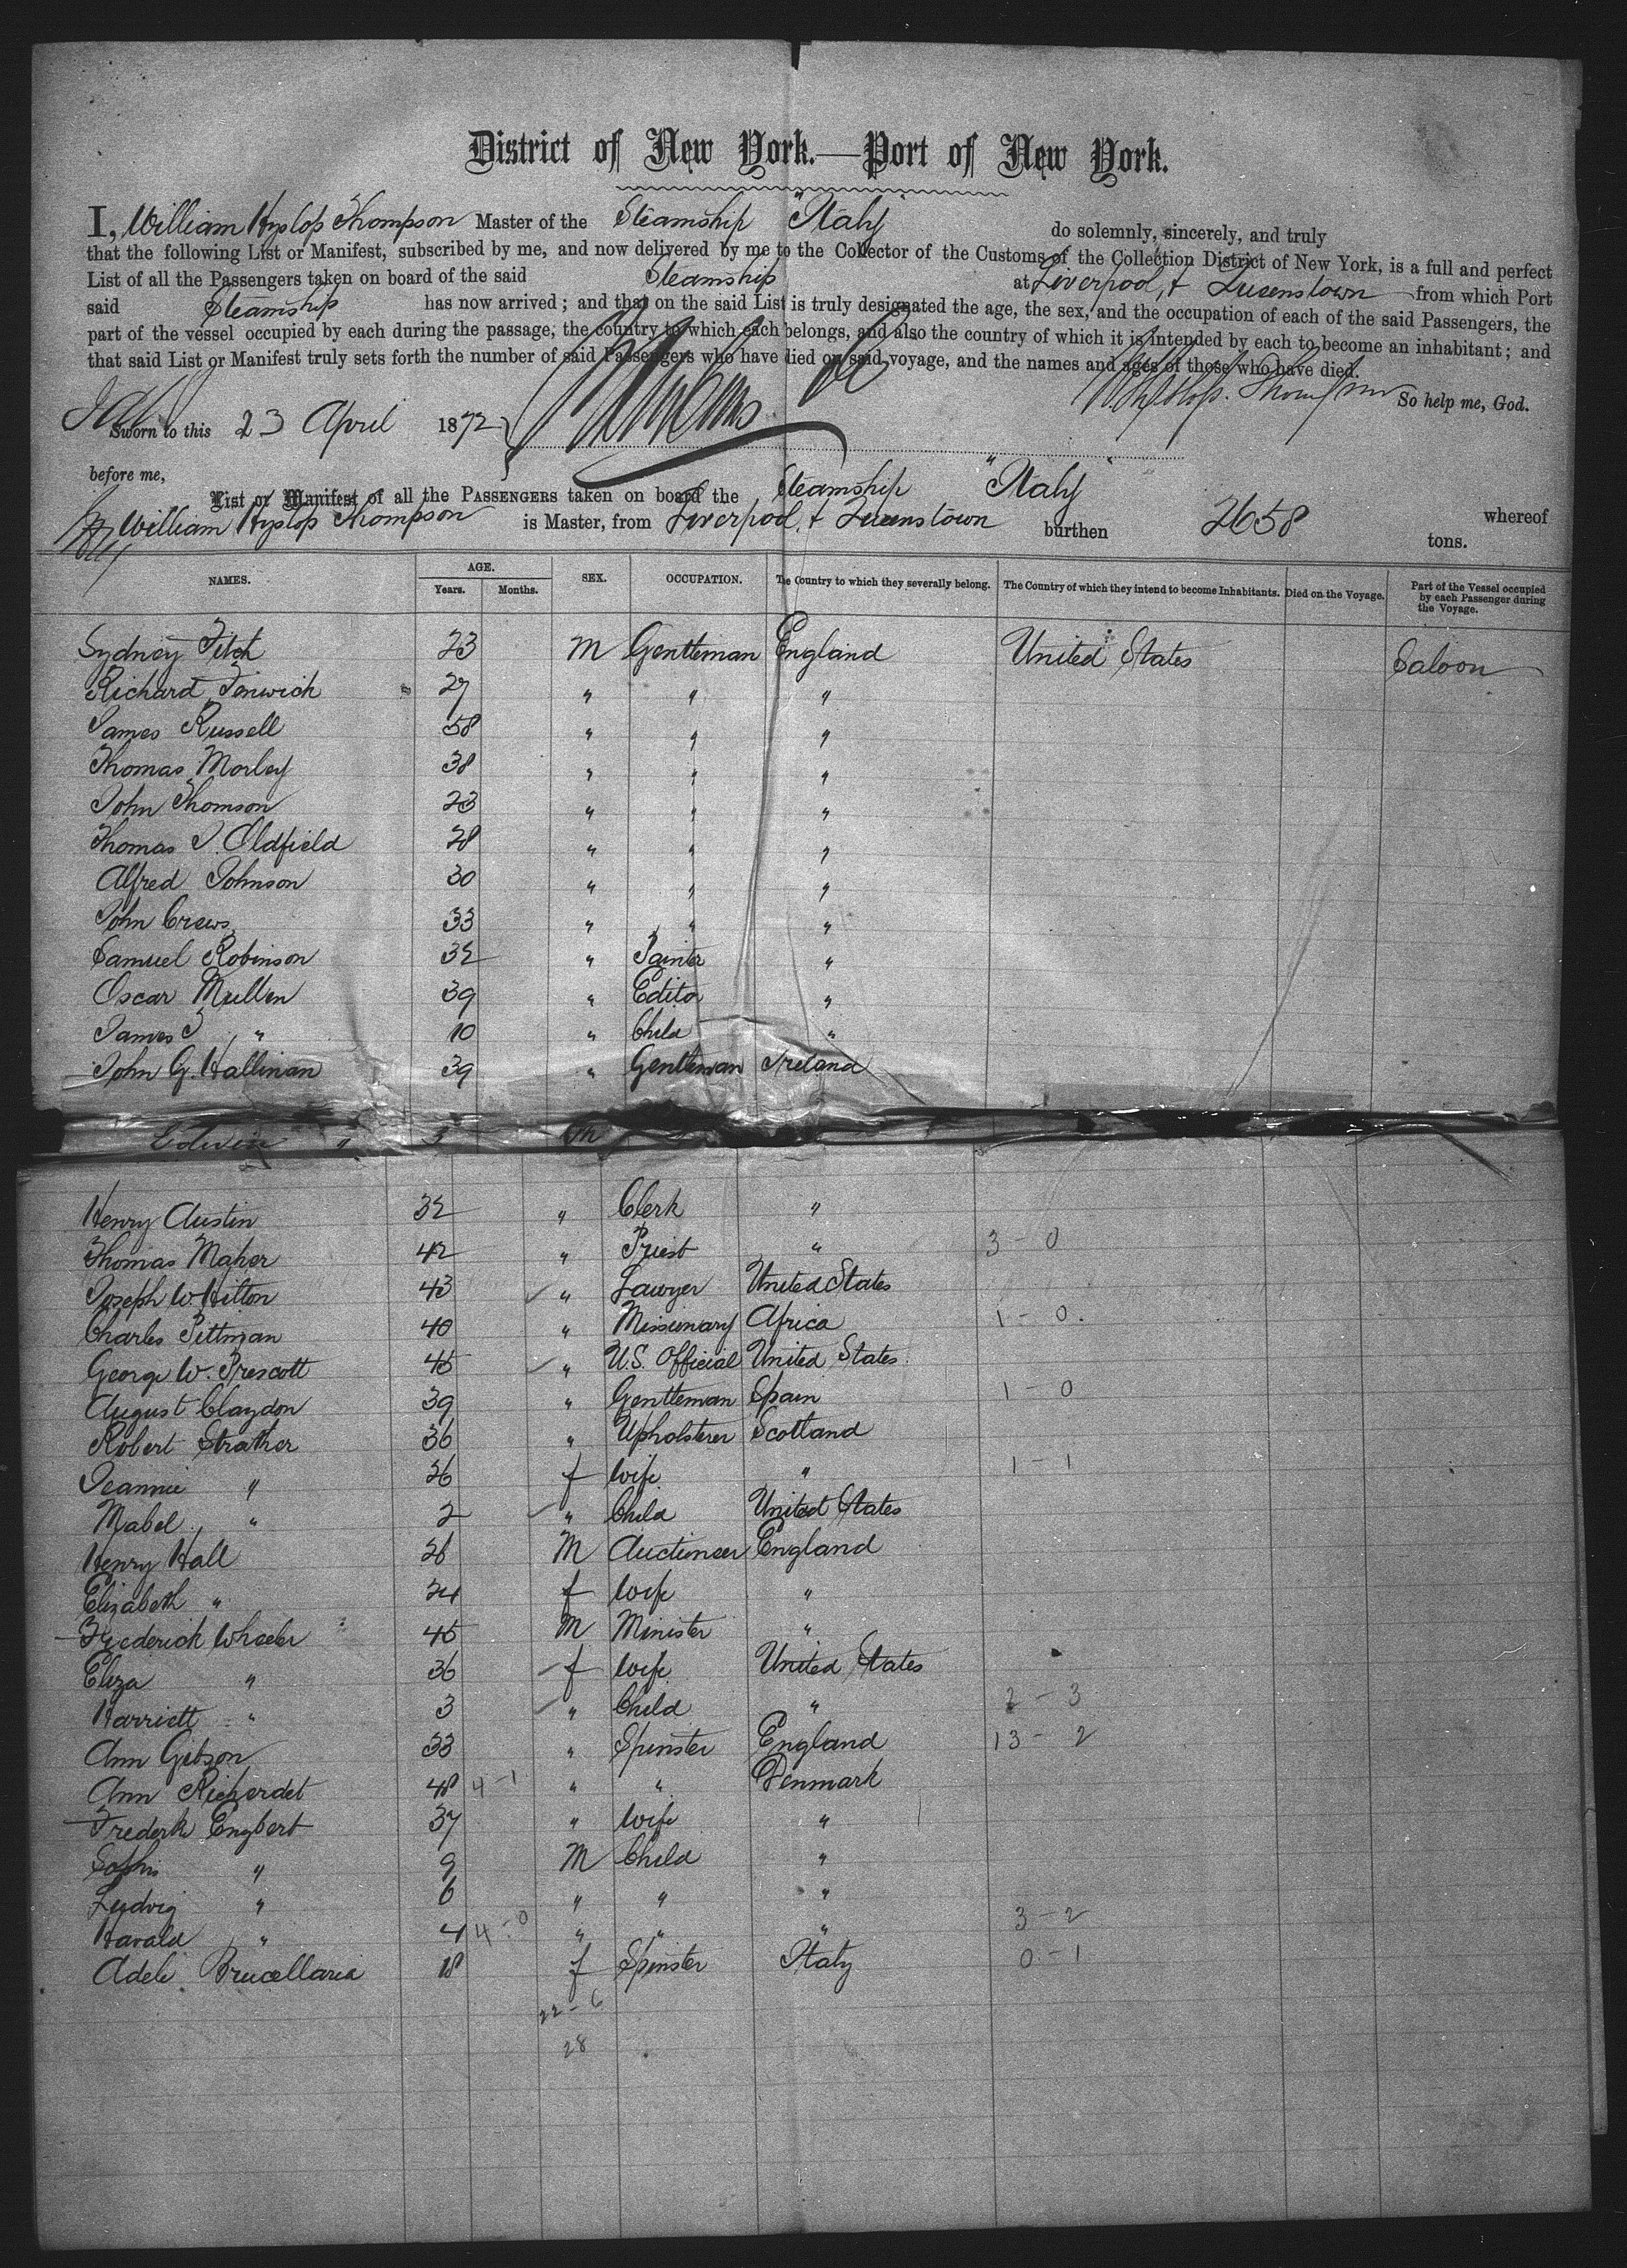 District of New York.—Port of New York.
I, William Hyslop Thompson Master of the Steamship "Italy" do solemnly, sincerely, and truly
that the following List or Manifest, subscribed by me, and now delivered by me to the Collector of the Customs of the Collection District of New York, is a full and perfect
List of all the Passengers taken on board of the said Steamship at Liverpool, & Queenstown from which Port
said Steamship has now arrived; and that on the said List is truly designated the age, the sex, and the occupation of each of the said Passengers, the
part of the vessel occupied by each during the passage, the country to which each belongs, and also the country of which it is intended by each to become an inhabitant; and
that said List or Manifest truly sets forth the number of said Passengers who have died on said voyage, and the names and ages of those who have died.
W Hyslop Thompson So help me, God.
Sworn to this 23 April 1872
before me,
List or Manifest of all the PASSENGERS taken on board the Steamship "Italy" whereof
William Hyslop Thompson is Master, from Liverpool, & Queenstown burthen 2658 tons.
NAMES. AGE. Years. Months. SEX. OCCUPATION. The Country to which they severally belong. The Country of which they intend to become Inhabitants. Died on the Voyage. Part of the Vessel occupied by each Passenger during the Voyage.
Sydney Fitch 23 M Gentleman England United States Saloon
Richard Fenwick 27 " " "
James Russell 58 " " "
Thomas Morley 38 " " "
John Thomson 23 " " "
Thomas J. Oldfield 28 " " "
Alfred Johnson 30 " " "
John Crews 33 " " "
Samuel Robinson 32 " Painter "
Oscar Mullen 39 " Editor "
James J " 10 " Child "
John G. Hallinan 39 " Gentleman Ireland
Edwin " 3 M
Henry Austin 32 " Clerk "
Thomas Maher 42 " Priest " 3-0
Joseph W. Hilton 43 " Lawyer United States
Charles Pittman 40 " Missionary Africa 1-0
George W. Prescott 45 " U.S. Official United States
August Claydon 39 " Gentleman Spain 1-0
Robert Strather 36 " Upholsterer Scotland
Jeannie " 26 f Wife " 1-1
Mabel " 2 " Child United States
Henry Hall 26 M Auctioneer England
Elizabeth " 24 f Wife "
Frederick Wheeler 45 M Minister "
Eliza " 36 f Wife United States
Harriett " 3 " Child " 2-3
Ann Gibson 33 " Spinster England 13-2
Ann Richerdet 48 4-1 " " Denmark
Frederke Engbert 37 " Wife "
Sophis " 9 M Child "
Ludvig " 6 " " "
Harald " 4 4-0 " " " 3-2
Adele Brucellaria 18 f Spinster Italy 0-1
22-6
28